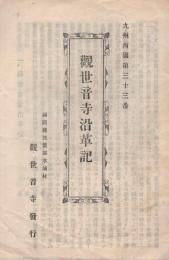 九州西國第三十三番
觀世音寺沿革記
福岡縣筑紫郡水城村
觀世音寺發行